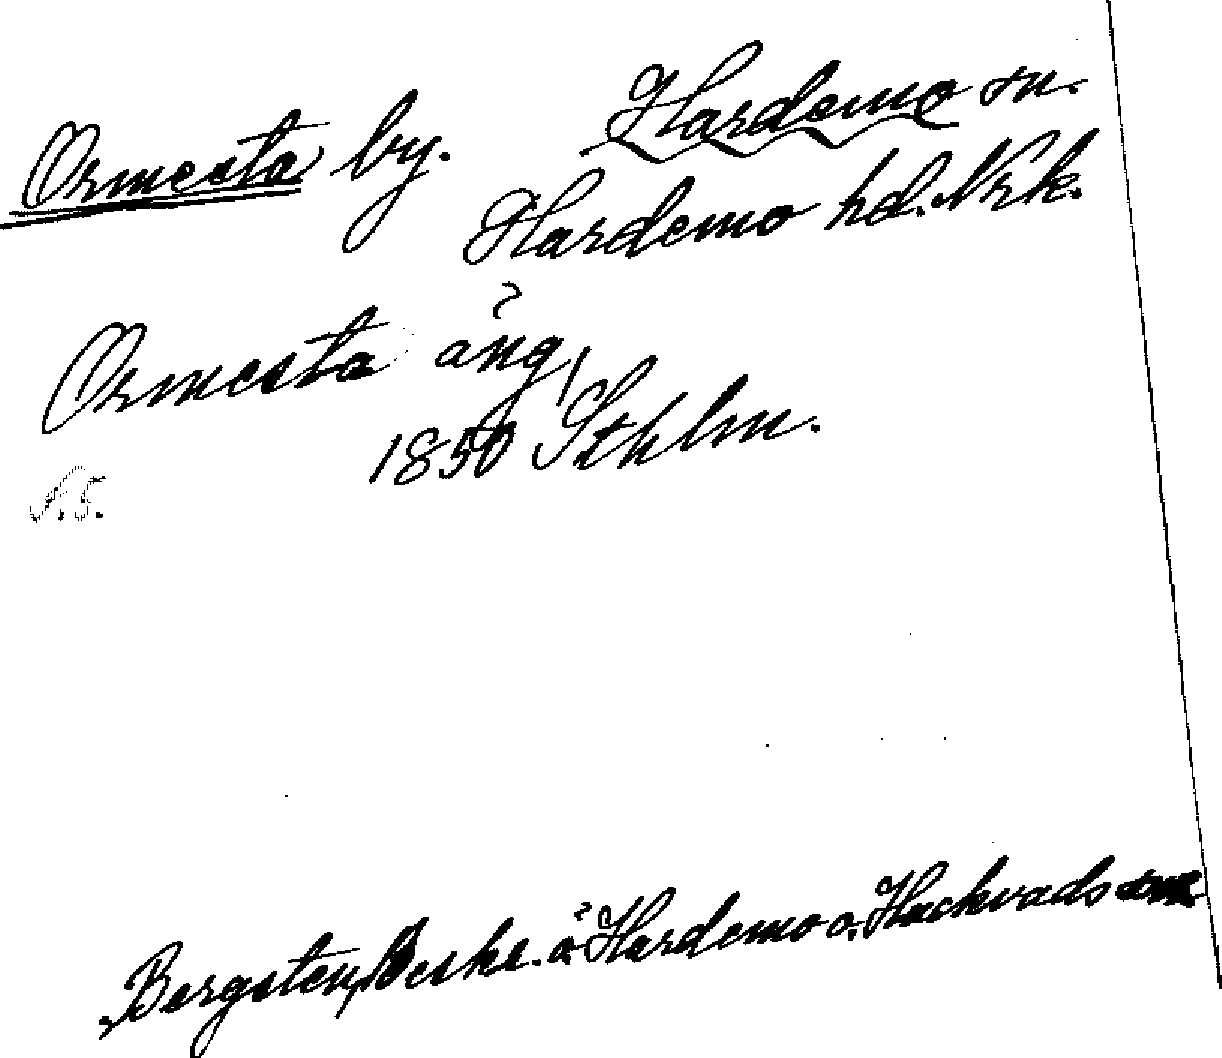 Ormesta by. Hardemo sn.
Hardemo hd. Nrk.
Ormesta äng,
1850 Sthlm.
Bergsten, Beskr. ö. Hardemo o. Hackvads snr